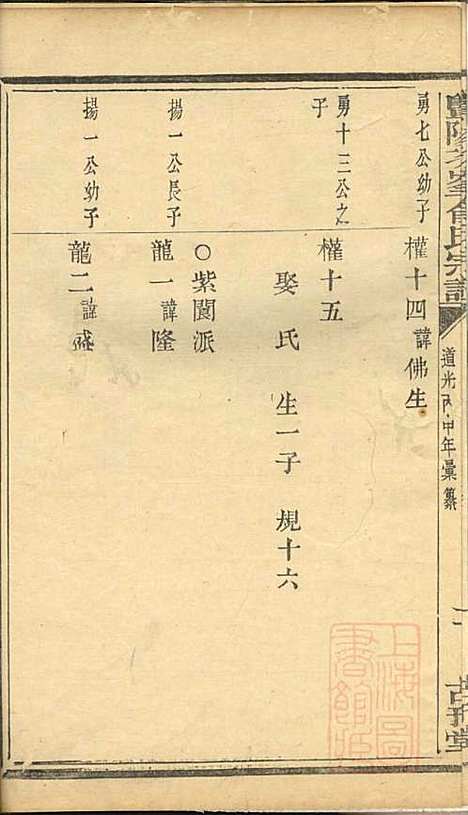 勇七公幼子
權十四諱佛生
勇十三公之
子
權十五
娶 氏 生一子 規十六
〇紫閬派
揚一公長子
龍一諱隆
揚一公幼子
龍二諱盛
俞氏宗譜
道光丙申年彙纂
上海圖
書館